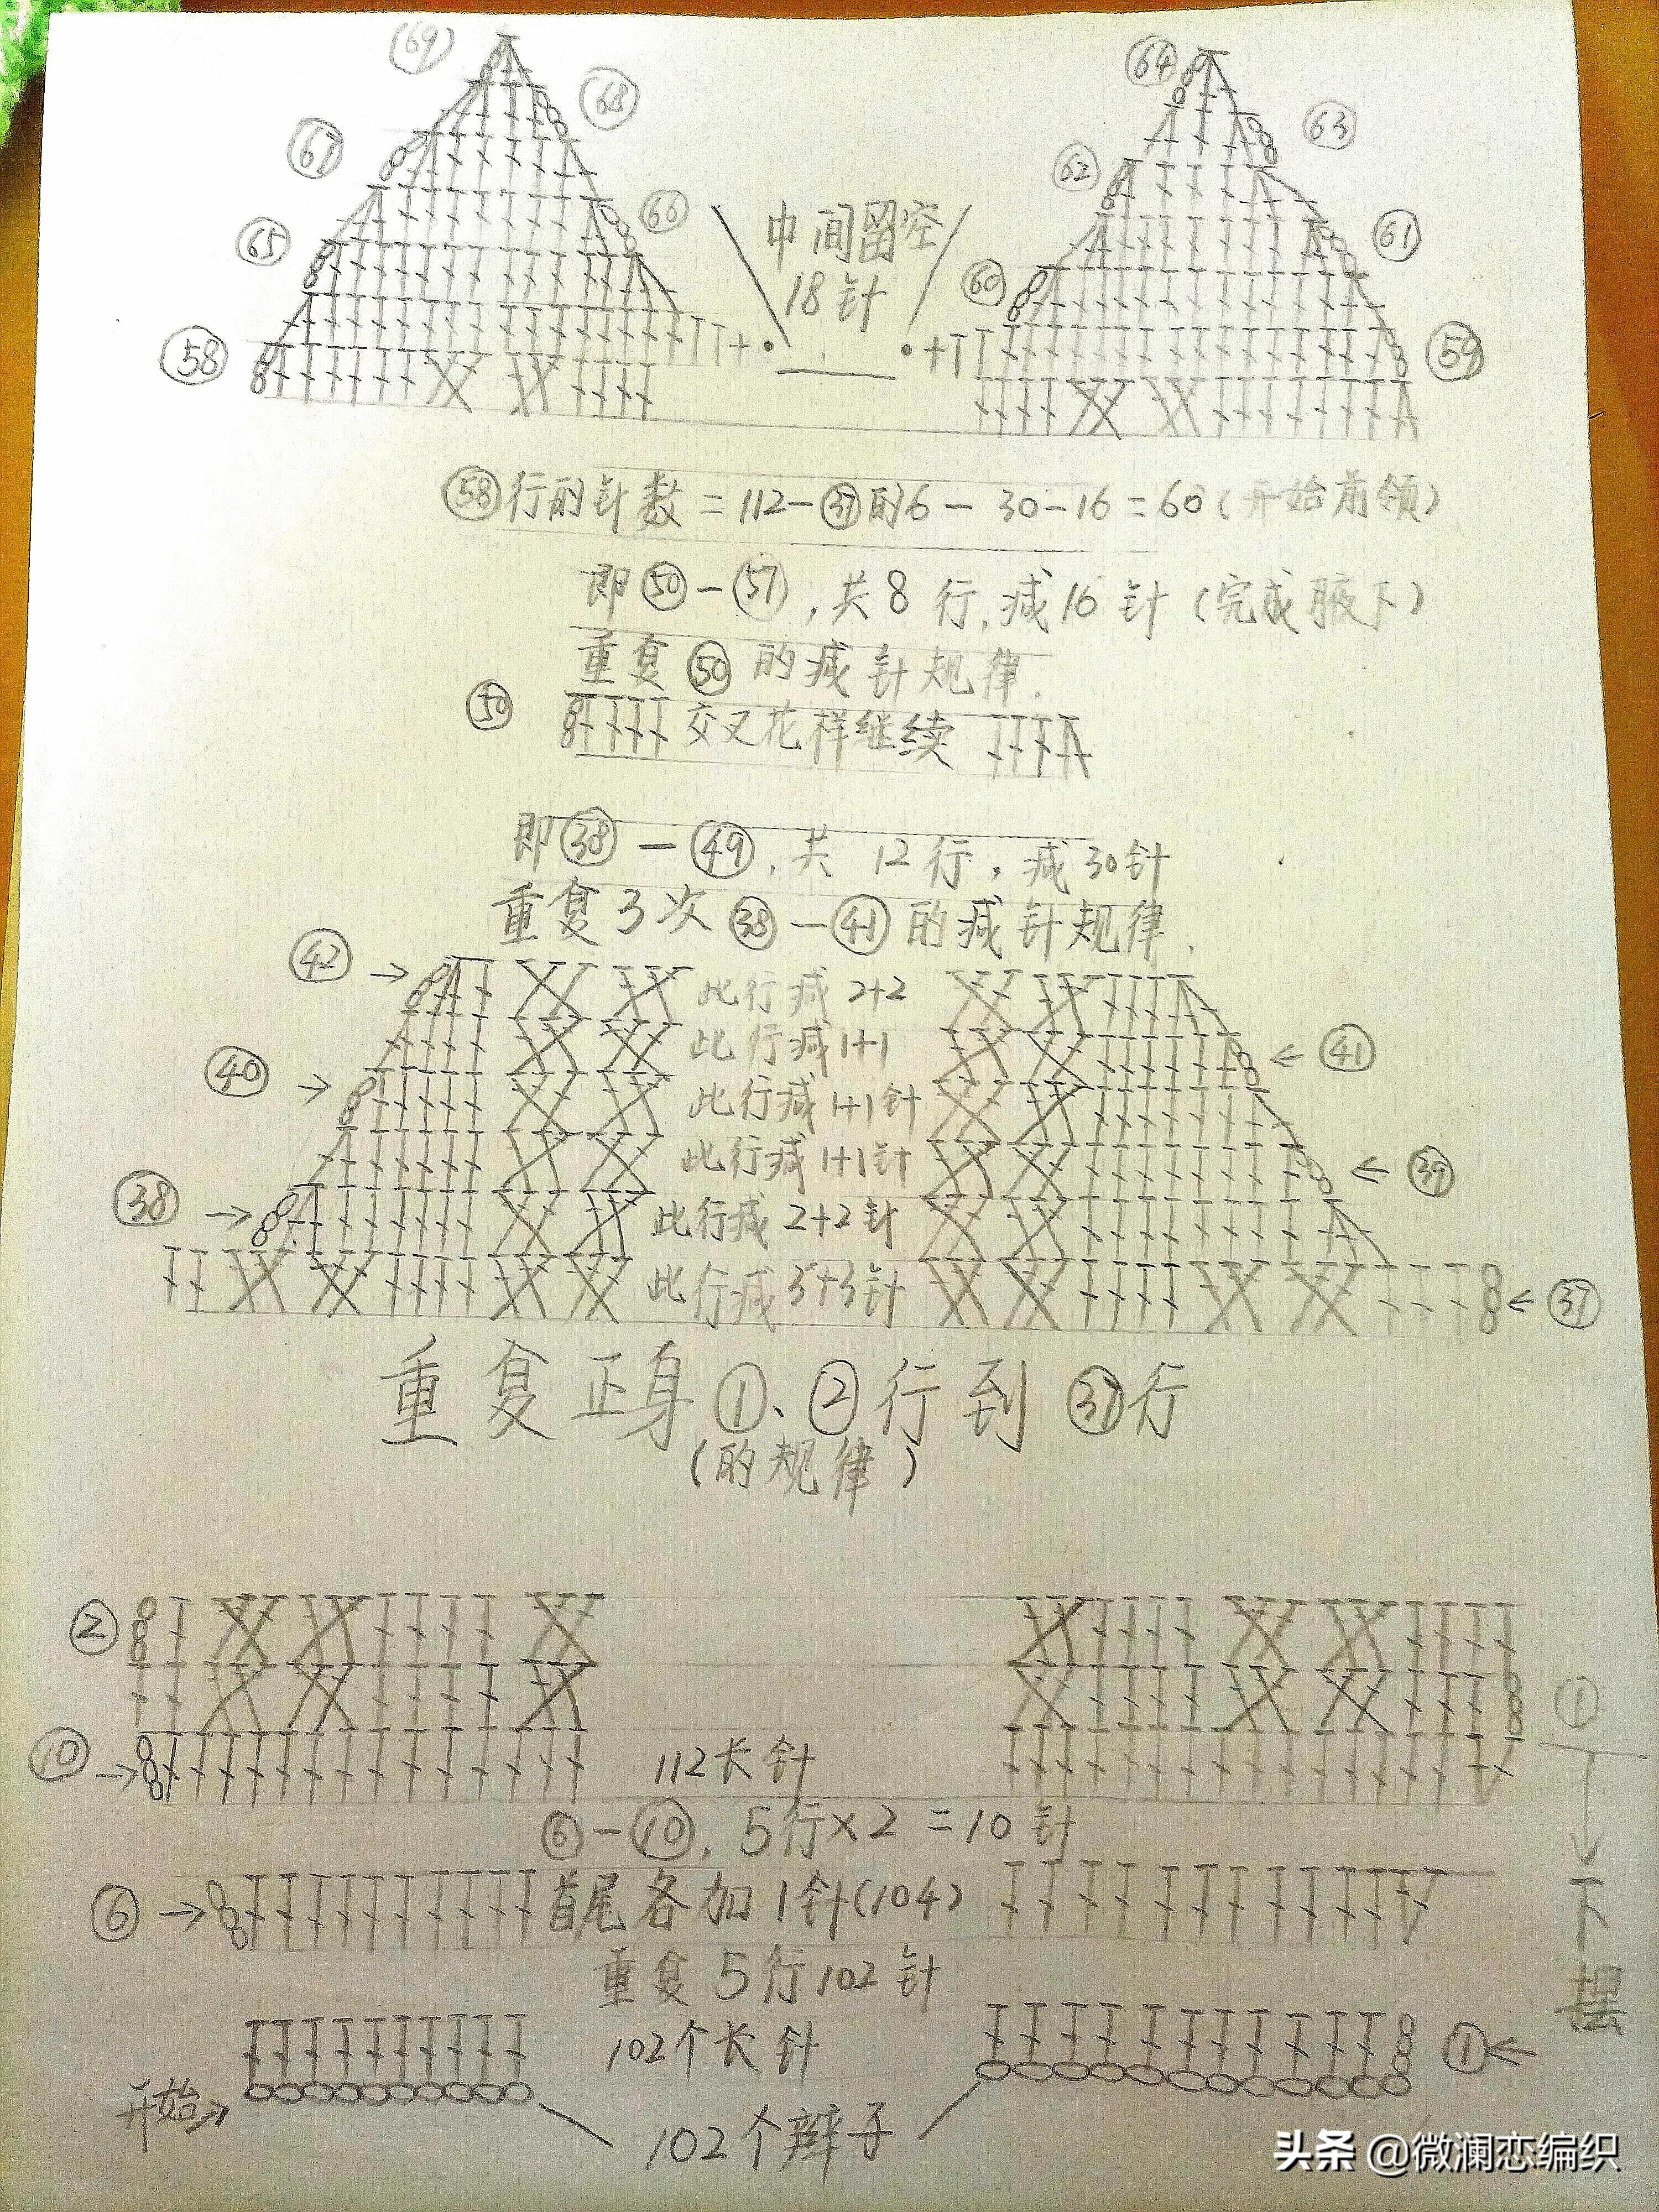 69 64
68 63
67 62
66 中间留空 61
65 18针 60
58 59
58行的针数=112-37的6-30-16=60(开始前领)
即50-57,共8行,减16针(完成腋下)
重复50的减针规律.
50 交叉花样继续
即38-49,共12行,减30针
重复3次38-41的减针规律.
42→ 此行减2+2
此行减1+1 ←41
40→ 此行减1+1针
此行减1+1针 ←39
38→ 此行减2+2针
此行减3+3针 ←37
重复正身①、②行到37行
(的规律)
②
①
⑩→ 112长针
⑥-⑩,5行×2=10针
⑥→ 首尾各加1针(104)
重复5行102针
下摆
102个长针 ①←
开始→
102个辫子
头条@微澜恋编织